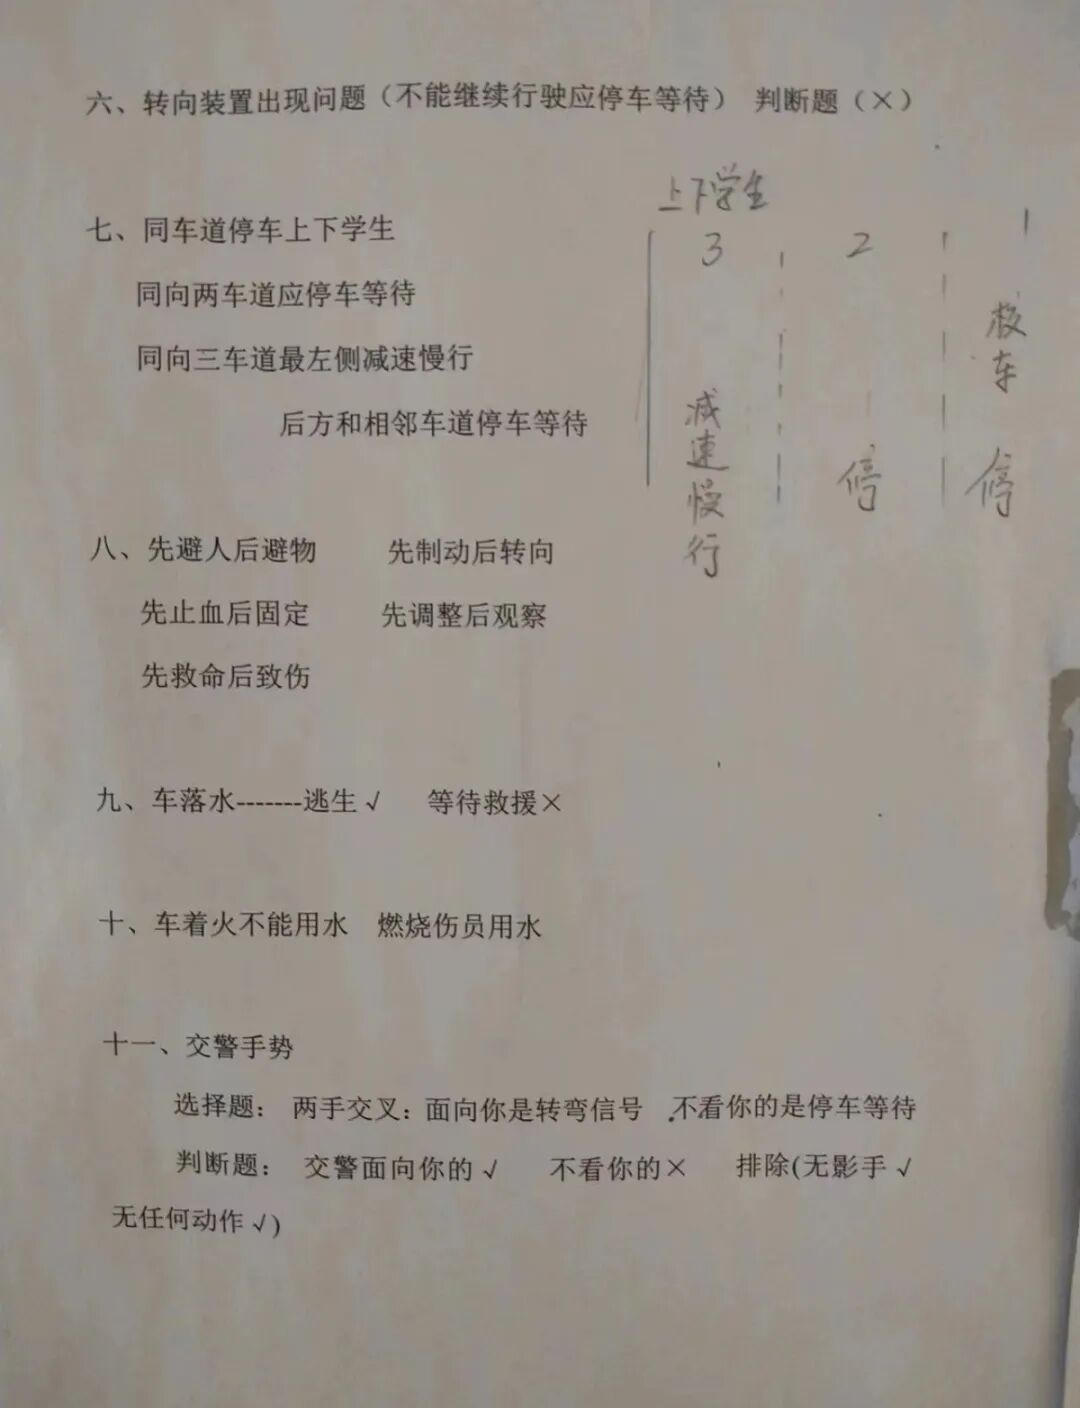 六、转向装置出现问题（不能继续行驶应停车等待） 判断题（×）
上下学生
七、同车道停车上下学生
3 2 1
同向两车道应停车等待
校车
同向三车道最左侧减速慢行
后方和相邻车道停车等待
减速慢行
停
停
八、先避人后避物 先制动后转向
先止血后固定 先调整后观察
先救命后致伤
九、车落水-------逃生√ 等待救援×
十、车着火不能用水 燃烧伤员用水
十一、交警手势
选择题： 两手交叉：面向你是转弯信号 .不看你的是停车等待
判断题： 交警面向你的√ 不看你的× 排除(无影手√
无任何动作√)